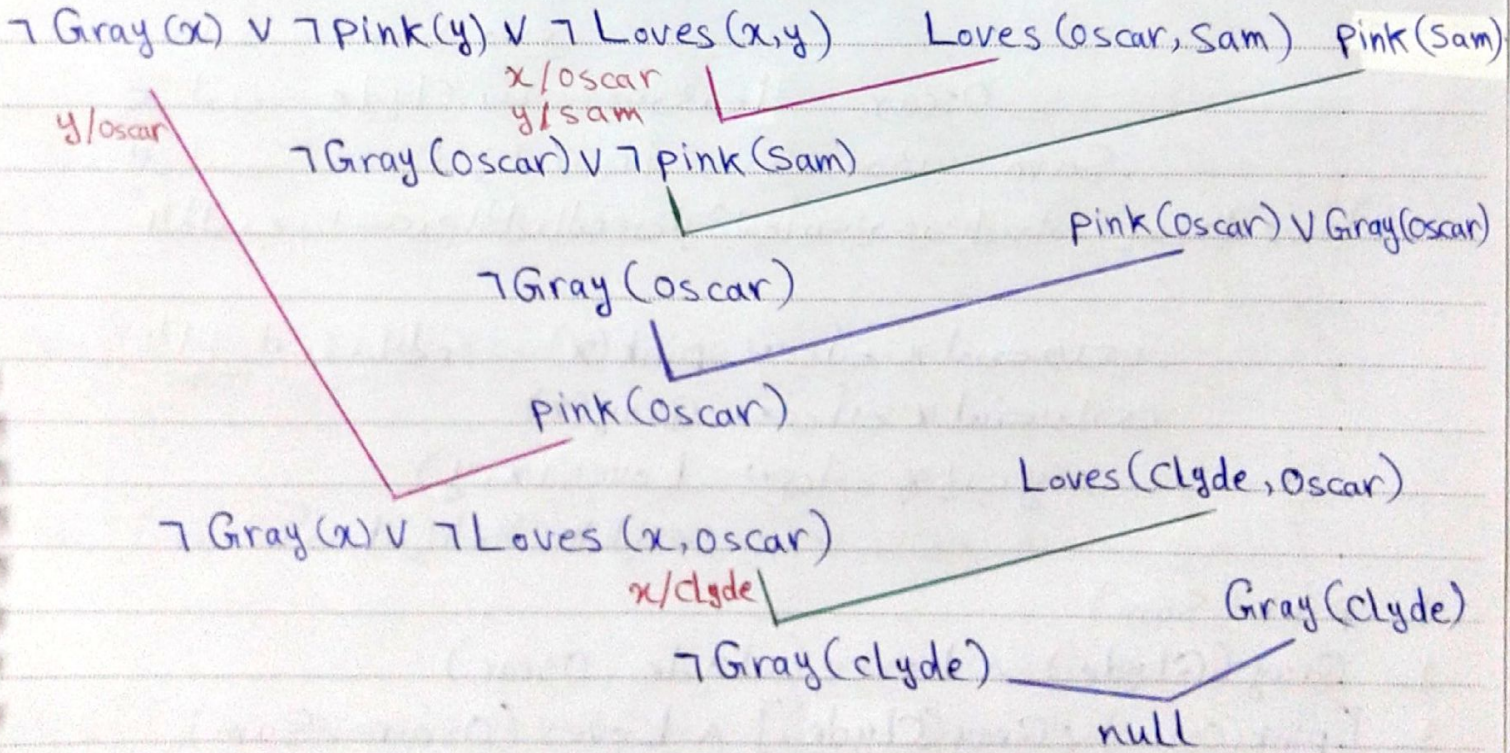 ¬ Gray (x) ∨ ¬ pink (y) ∨ ¬ Loves (x,y) Loves (oscar, Sam) pink (Sam)
x/oscar
y/oscar y/sam
¬ Gray (oscar) ∨ ¬ pink (Sam)
pink (oscar) ∨ Gray (oscar)
¬ Gray (oscar)
pink (oscar)
Loves (Clyde, Oscar)
¬ Gray (x) ∨ ¬ Loves (x, oscar)
x/clyde
Gray (Clyde)
¬ Gray (clyde)
null